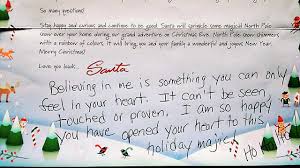 So many questions!
Stay happy and curious and continue to be good. Santa will sprinkle some magical North Pole
snow over your home during our grand adventure on Christmas Eve. North Pole snow shimmers
with a rainbow of colours. It will bring you and your family a wonderful and joyous New Year.
Merry Christmas!
Love you loads...
Santa
Believing in me is something you can only
feel in your heart. It can't be seen,
touched or proven. I am so happy
you have opened your heart to this
holiday magic!
Ho